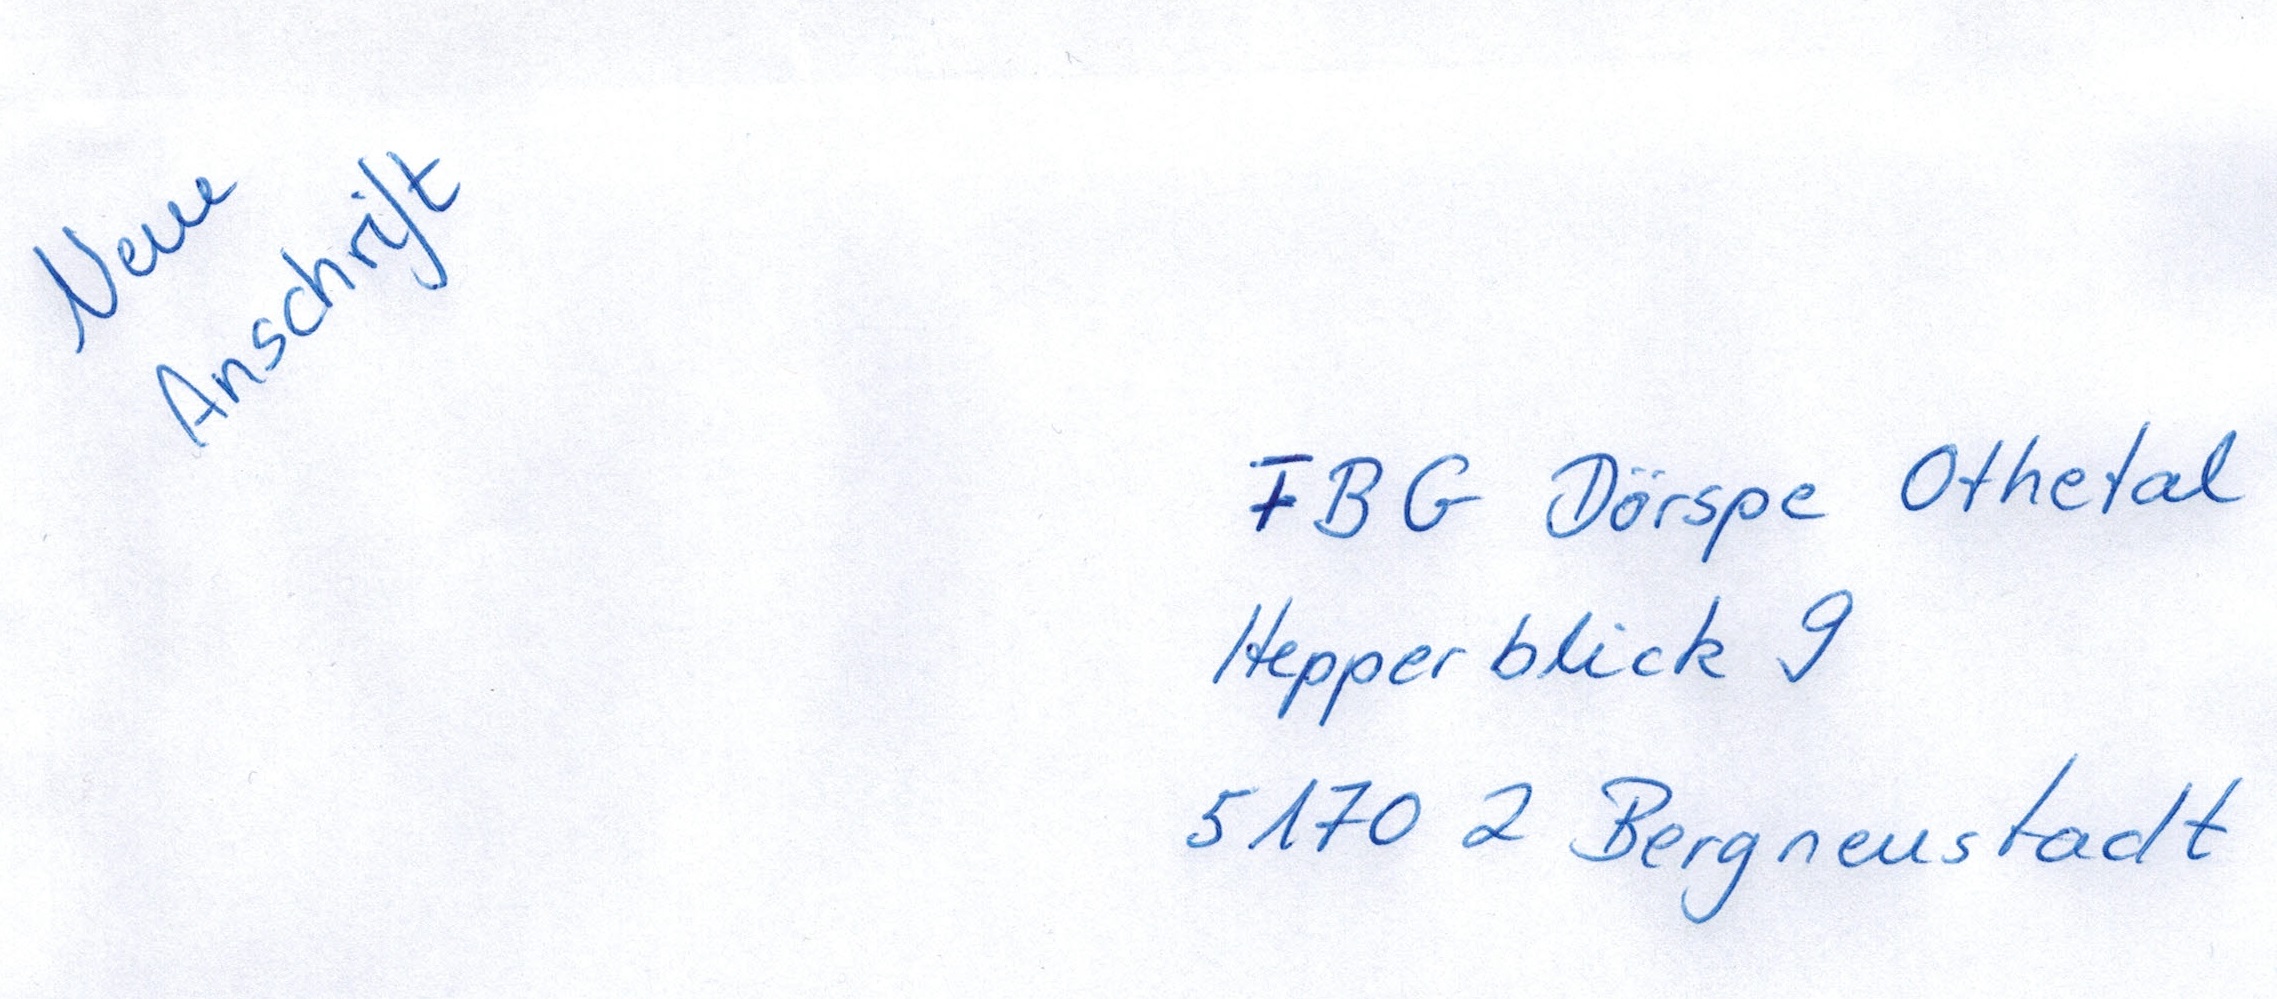 Neue
Anschrift
FBG Dörspe Othetal
Hepperblick 9
51702 Bergneustadt